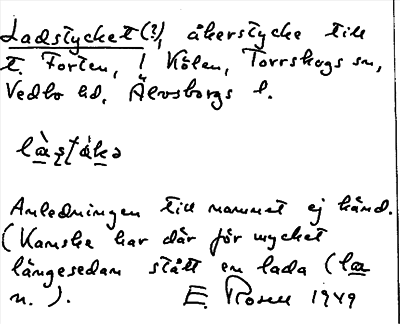 Ladstycket (?), åkerstycke till
t. Torten, i Kölen, Torrskogs sn,
Vedbo hd, Älvsborgs l.
Anledningen till namnet ej känd.
(Kanske har där för mycket
längesedan stått en lada (la
n.).
E. Rosell 1949